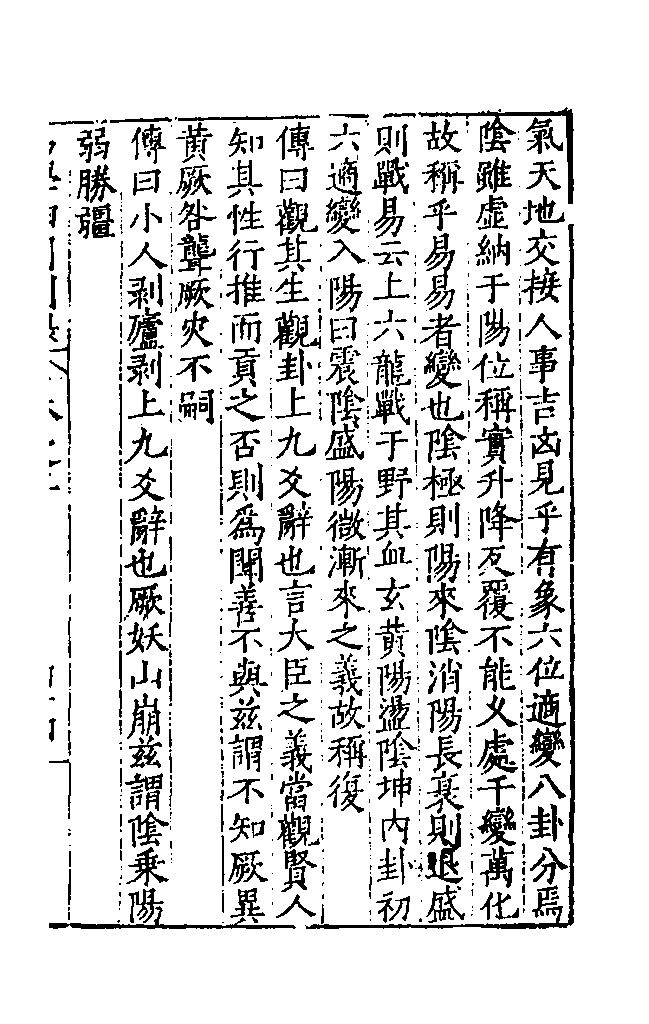 氣天地交接人事吉凶見乎有象六位適變八卦分焉
陰雖虛納于陽位稱實升降反覆不能乆處千變萬化
故稱乎易易者變也陰極則陽來陰消陽長衰則退盛
則戰易云上六龍戰于野其血玄黄陽盪陰坤内卦初
六適變入陽曰震陰盛陽微漸來之義故稱復
傳曰觀其生觀卦上九爻辭也言大臣之義當觀賢人
知其性行推而貢之否則為聞善不與兹謂不知厥異
黄厥咎聾厥灾不嗣
傳曰小人剥廬剥上九爻辭也厥妖山崩兹謂陰乗陽
弱勝疆